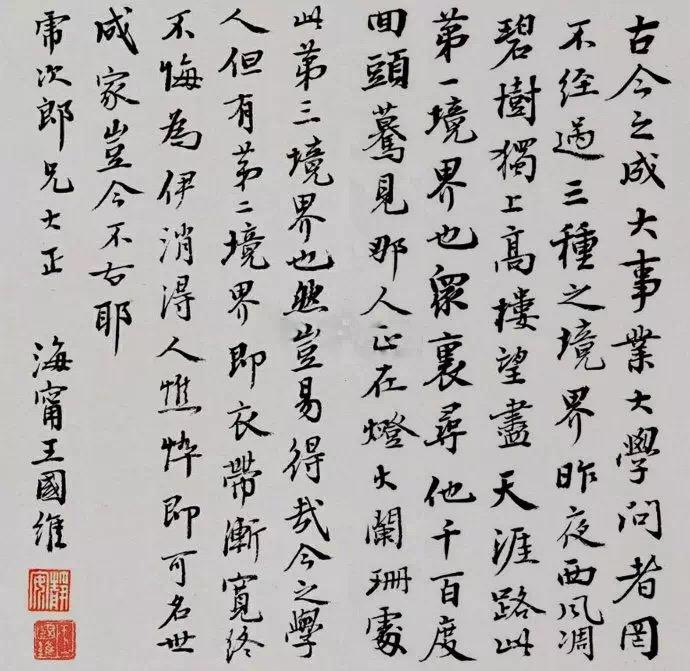 古今之成大事業大學問者罔
不經過三種之境界昨夜西風凋
碧樹獨上高樓望盡天涯路此
第一境界也衆裏尋他千百度
回頭驀見那人正在燈火闌珊處
此第三境界也然豈易得哉今之學
人但有第二境界即衣帶漸寬終
不悔為伊消得人憔悴即可名世
成家豈今不古耶
霈次郎兄大正
海甯王國維
靜安
王國維